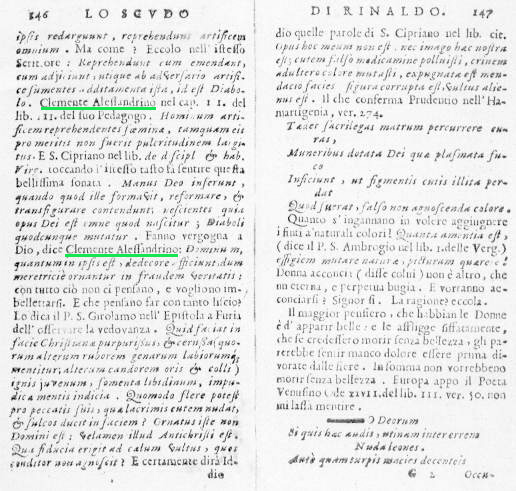 146 LO SCVDO
ipsis redarguunt, reprehendunt artificem
omnium. Ma come? Eccolo nell'istesso
Scrittore: Reprehendunt cum emendant,
cum adjiciunt, utique ab adversario artifi-
ce sumentes additamenta ista, id est Diabo-
lo. Clemente Alessandrino nel cap. II. del
lib. III. del suo Pedagogo. Hominum arti-
ficem reprehendentes fœmina, tamquam eis
pro meritis non fuerit pulcritudinem largi-
tus. E S. Cipriano nel lib. de discipl & hab.
Virg. toccando l'istesso tasto fa sentire questa
bellissima sonata. Manus Deo inferunt,
quando quod ille formavit, reformare, &
transfigurare contendunt, nescientes quia
opus Dei est omne quod nascitur; Diaboli
quodcunque mutatur. Fanno vergogna a
Dio, dice Clemente Alessandrino: Dominum,
quantum in ipsis est, dedecore efficiunt dum
meretriciè ornantur in fraudem veritatis:
con tutto ciò non ci pensano, e vogliono im-
bellettarsi. E che pensano far con tanto liscio?
Lo dica il P. S. Girolamo nell'Epistola a Furia
dell'osservare la vedovanza. Quid faciat in
facie Christiana purpurissus, & cerussa? quo-
rum alterum ruborem genarum laborumq;
mentitur, alterum candorem oris & colli;
ignis juvenum, fomenta libidinum, impu-
dica mentis indicia. Quomodo flere potest
pro peccatis suis, qua lacrimis cutem nudat,
& sulcos ducit in faciem? Ornatus iste non
Domini est: Velamen illud Antichristi est.
Qua fiducia erigit ad calum vultus, quos
conditor non agnoscit? E certamente dirà Id-
dio
DI RINALDO. 147
dio quelle parole di S. Cipriano nel lib. cit.
Opus hoc meum non est, nec imago hac nostra
est; cutem falso medicamine polluisti, crinem
adultero colore mutasti, expugnata est men-
dacio facies figura corrupta est, vultus alie-
nus est. Il che conferma Prudentio nell'Ha-
martigenia, ver. 274.
Tadet sacrilegas matrum percurrere cu-
ras,
Muneribus dotata Dei qua plasmata fu-
co
Inficiunt, ut figmentis cutis illita per-
dat
Quod fuerat, falso non agnoscenda colore.
Quanto s'ingannano in volere aggiungere
i finti a' naturali colori? Quanta amentia est,
(dice il P. S. Ambrogio nel lib. I. delle Verg.)
effigiem mutare natura, picturam quarere?
Donna acconcia (disse colui) non è altro, che
un eterna, e perpetua bugia. E vorranno ac-
conciarsi? Signor sì. La ragione? eccola.
Il maggior pensiero, che habbian le Donne
è d'apparir belle: e le afflige sissattamente,
che se credessero morir senza bellezza, gli pa-
rerebbe sentir manco dolore essere prima di-
vorate dalle fiere. In somma non vorrebbeno
morir senza bellezza. Europa appo il Poeta
Venusino Ode XXVII. del lib. III. ver. 50. non
mi lassa mentire.
O Deorum
Si quis hac audis, utinam inter errem
Nuda leones.
Antè quam turpis macies decenteis
G 2 Occu-